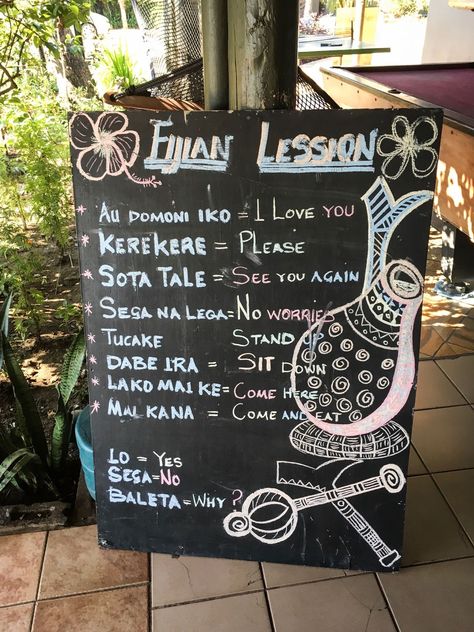 Fijian Lession
* Au domoni iko = I Love you
* Kerekere = Please
* Sota Tale = See you again
* Sega na lega = No worries
* Tucake Stand up
* Dabe ira = Sit down
* Lako mai ke = Come here
* Mai kana = Come and eat
Lo = Yes
Sega = No
Baleta = Why?